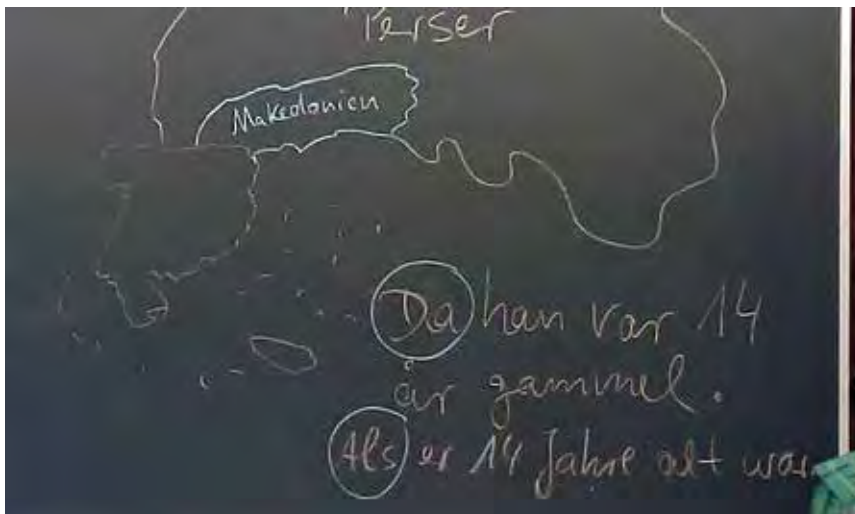 Perser
Makedonien
Da han var 14
år gammel.
Als er 14 Jahre alt war